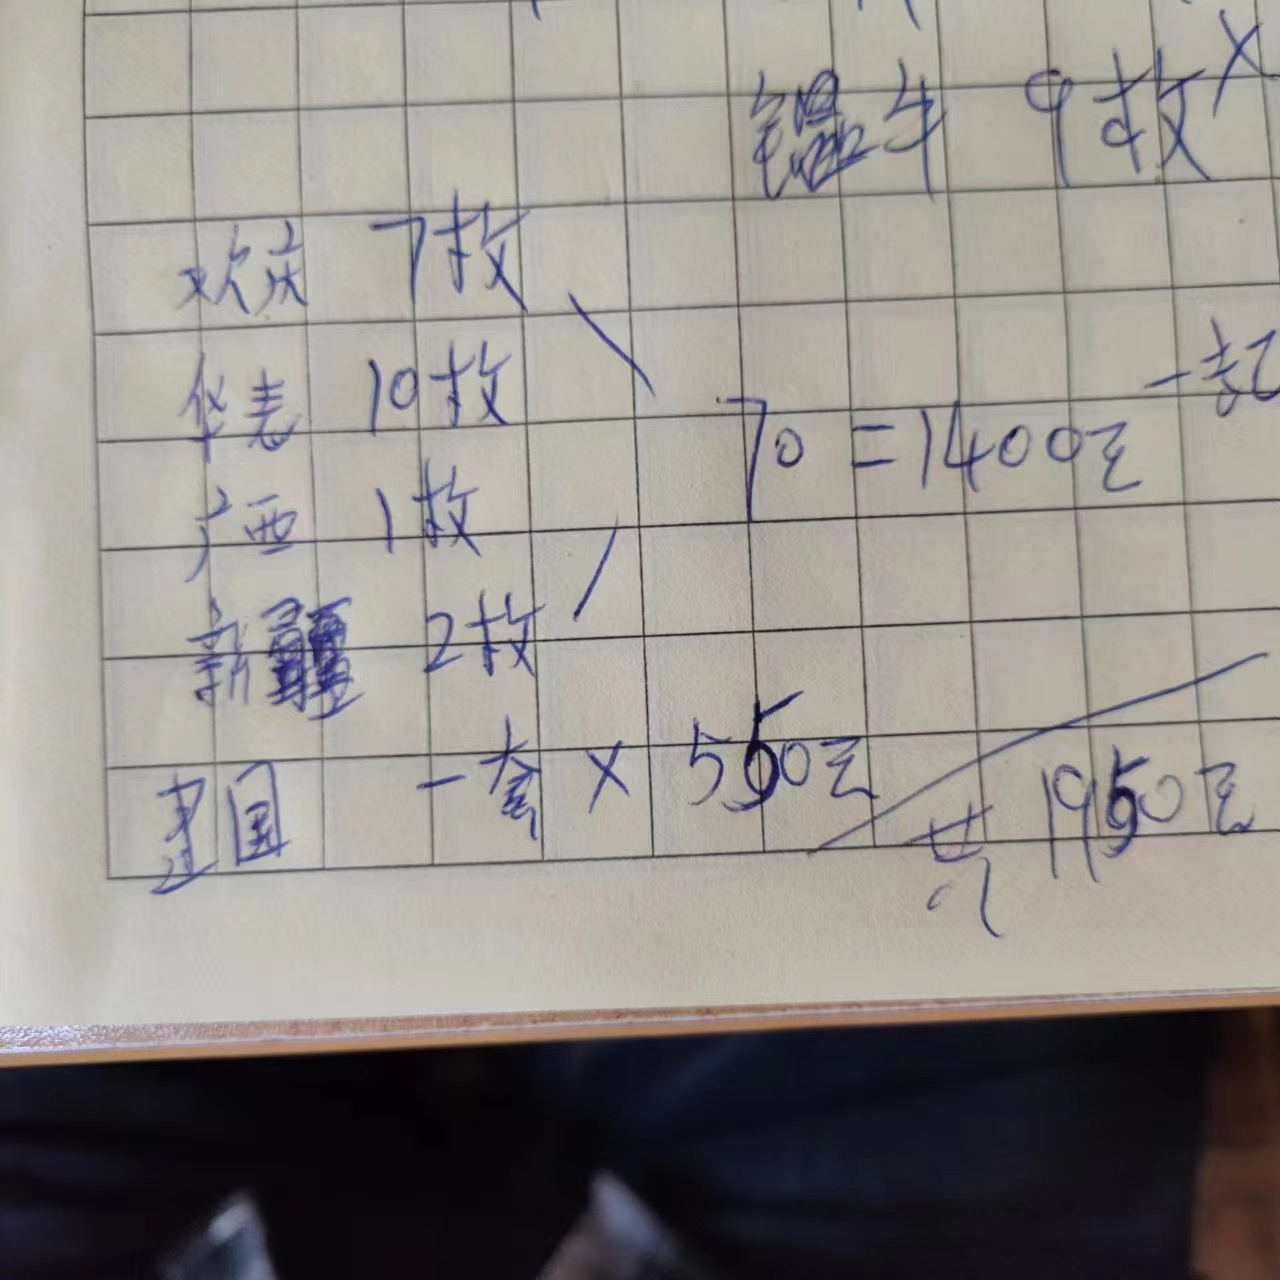 牛 9枚X
欢庆 7枚
华表 10枚 一起
广西 1枚 70=1400元
新疆 2枚
建国 一套 X 550元 共 1950元